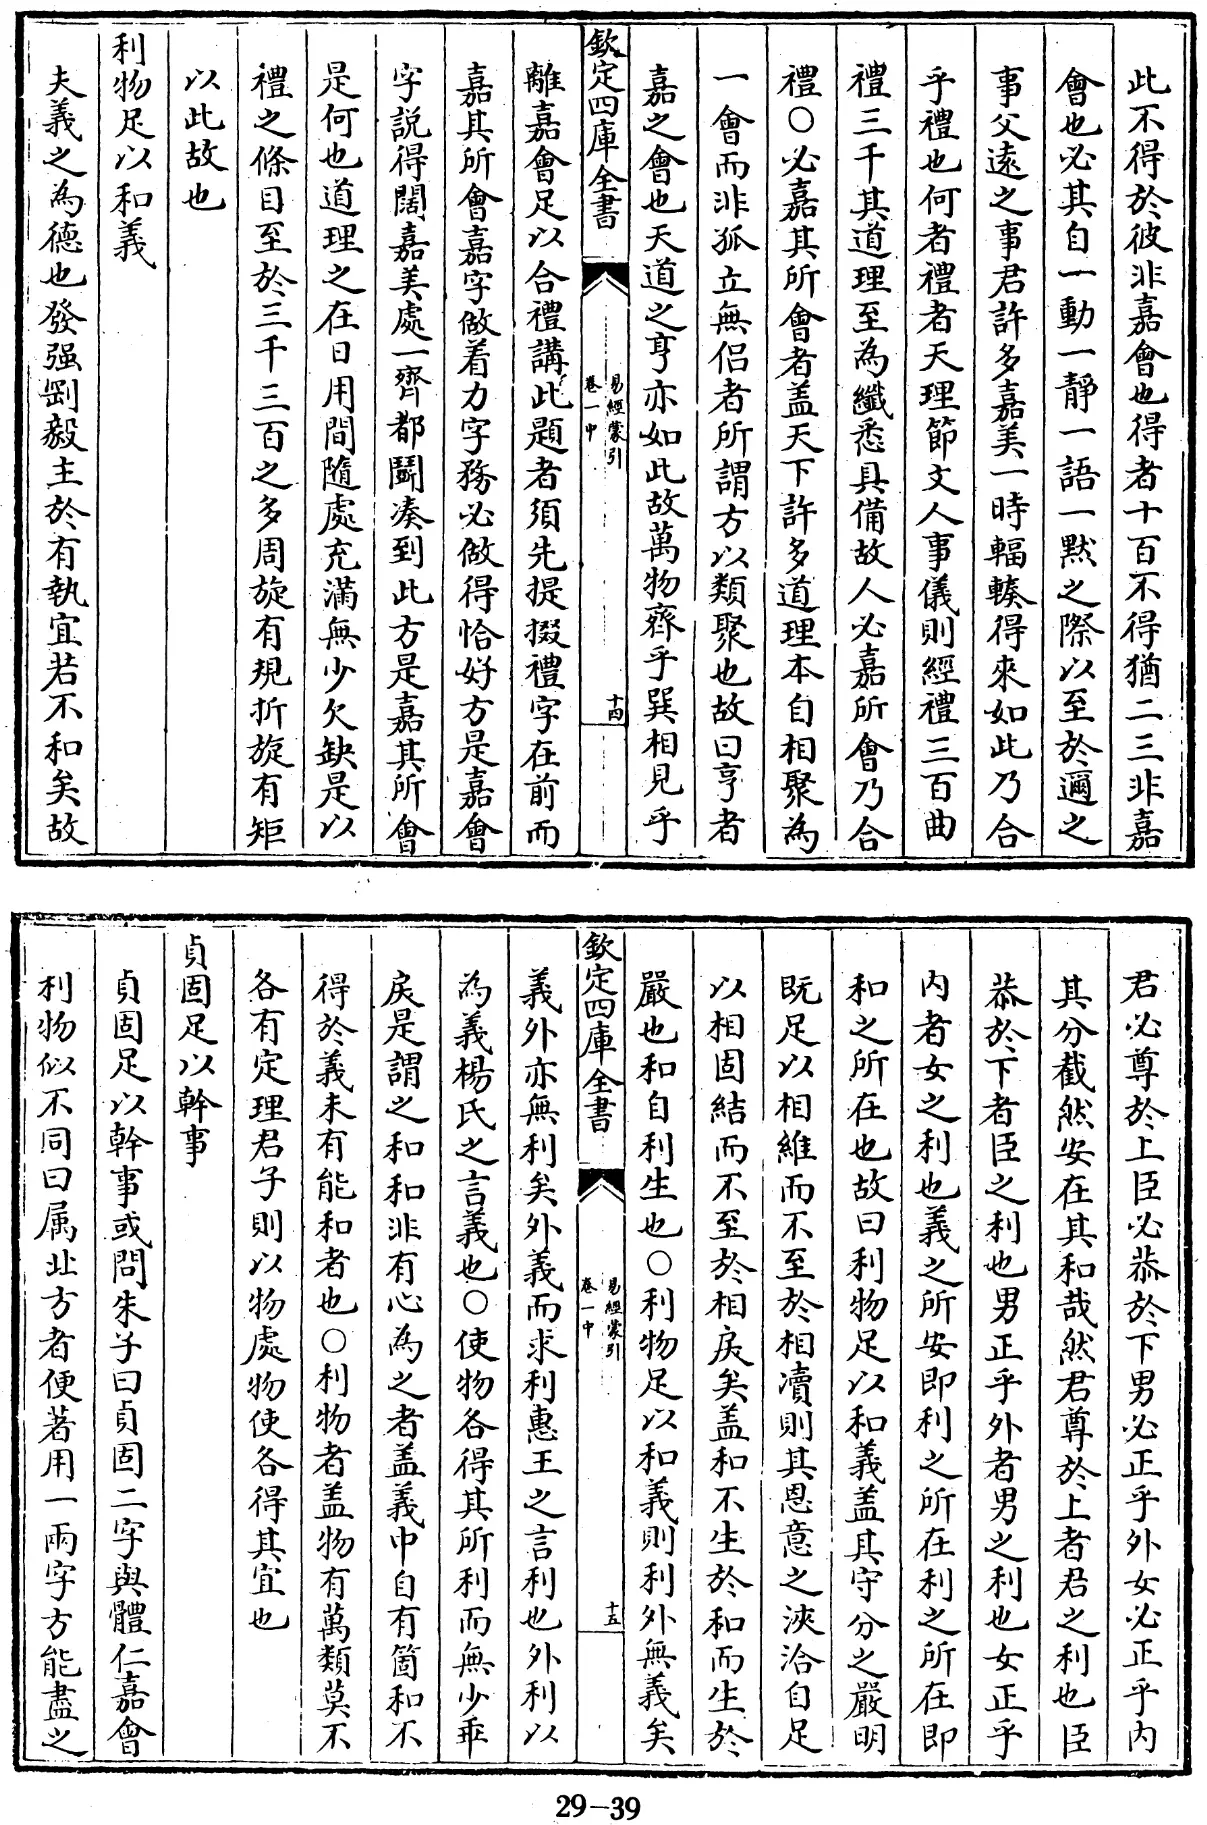 此不得於彼非嘉會也得者十百不得猶二三非嘉
會也必其自一動一靜一語一黙之際以至於邇之
事父逺之事君許多嘉美一時輻輳得來如此乃合
乎禮也何者禮者天理節文人事儀則經禮三百曲
禮三千其道理至為纖悉具備故人必嘉所會乃合
禮○必嘉其所會者盖天下許多道理本自相聚為
一會而非孤立無侣者所謂方以類聚也故曰亨者
嘉之會也天道之亨亦如此故萬物齊乎巽相見乎
欽定四庫全書
易經蒙引
卷一中
十四
離嘉會足以合禮講此題者須先提掇禮字在前而
嘉其所會嘉字做着力字務必做得恰好方是嘉會
字説得闊嘉美處一齊都鬭凑到此方是嘉其所會
是何也道理之在日用間隨處充滿無少欠缺是以
禮之條目至於三千三百之多周旋有規折旋有矩
以此故也
利物足以和義
夫義之為德也發强剛毅主於有執宜若不和矣故
君必尊於上臣必恭於下男必正乎外女必正乎内
其分截然安在其和哉然君尊於上者君之利也臣
恭於下者臣之利也男正乎外者男之利也女正乎
内者女之利也義之所安即利之所在利之所在即
和之所在也故曰利物足以和義盖其守分之嚴明
既足以相維而不至於相凟則其恩意之浹洽自足
以相固結而不至於相戾矣盖和不生於和而生於
嚴也和自利生也○利物足以和義則利外無義矣
欽定四庫全書
易經蒙引
卷一中
十五
義外亦無利矣外義而求利惠王之言利也外利以
為義楊氏之言義也○使物各得其所利而無少乖
戾是謂之和和非有心為之者盖義中自有箇和不
得於義未有能和者也○利物者盖物有萬類莫不
各有定理君子則以物處物使各得其宜也
貞固足以幹事
貞固足以幹事或問朱子曰貞固二字與體仁嘉會
利物似不同曰属北方者便著用一兩字方能盡之
29-39